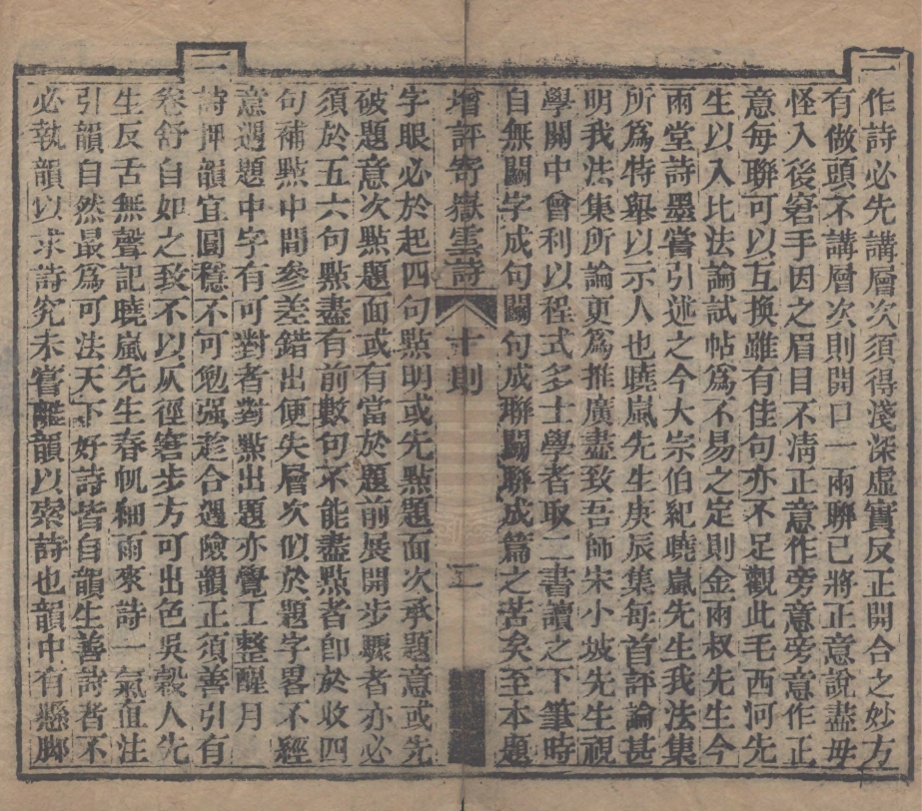 二
作詩必先講層次須得淺深虛實反正開合之妙方
有做頭不講層次則開口一兩聯已將正意說盡毋
怪入後窘手因之眉目不清正意作旁意旁意作正
意每聯可以互換雖有佳句亦不足觀此毛西河先
生以入比法論試帖爲不易之定則金雨叔先生今
雨堂詩墨嘗引述之今大宗伯紀曉嵐先生我法集
所爲特舉以示人也曉嵐先生庚辰集每首評論甚
明我法集所論更爲推廣盡致吾師宋小坡先生視
學關中曾利以程式多士學者取二書讀之下筆時
自無鬬字成句鬬句成聯鬬聯成篇之苦矣至本題
增評寄嶽雲詩 十則 二
字眼必於起四句點明或先點題面次承題意或先
破題意次點題面或有當於題前展開步驟者亦必
須於五六句點盡有前數句不能盡點者卽於收四
句補點中間參差錯出便失層次似於題字畧不經
意遇題中字有可對者對點出題亦覺工整醒目
三
詩押韻宜圓穩不可勉强趁合遇險韻正須善引有
卷舒自如之致不以仄徑窘步方可出色吳穀人先
生反舌無聲記曉嵐先生春帆細雨來詩一氣値注
引韻自然最爲可法天下好詩皆自韻生善詩者不
必執韻以求詩究未嘗離韻以索詩也韻中有懸脚